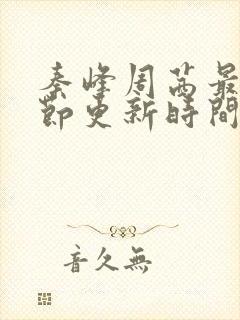 秦峰周茜最
節更新時間
音久無